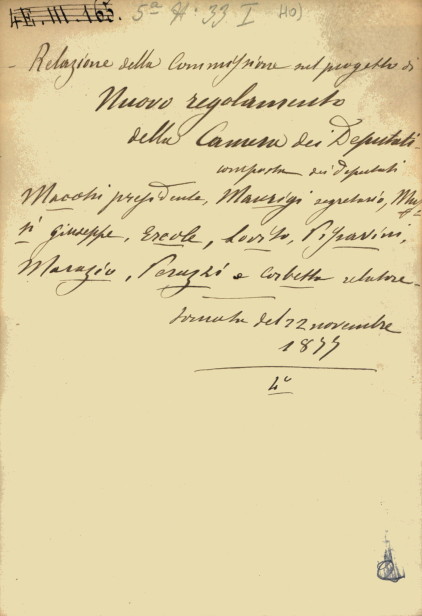 4E. III. 165.
5ª H: 33 I (10)
- Relazione della Commissione sul progetto di
Nuovo regolamento
della Camera dei Deputati -
composta dei deputati
Macchi presidente, Maurigi segretario, Mus-
si Giuseppe, Ercole, Lovito, Pissavini,
Marazio, Peruzzi e Corbetta relatore -
tornata del 22 novembre
1877
4º